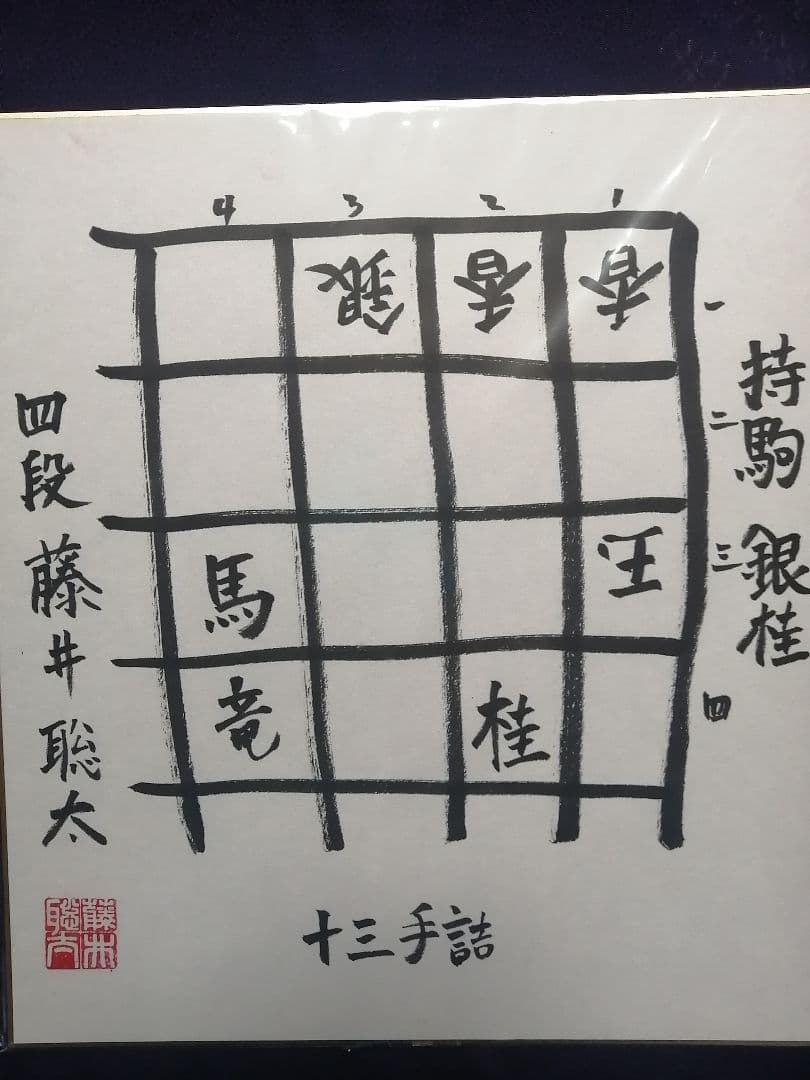 4 3 2 1
銀 香 香 一
二
馬 玉 三
竜 桂 四
持駒 銀桂
四段 藤井聡太
十三手詰
藤井聡太